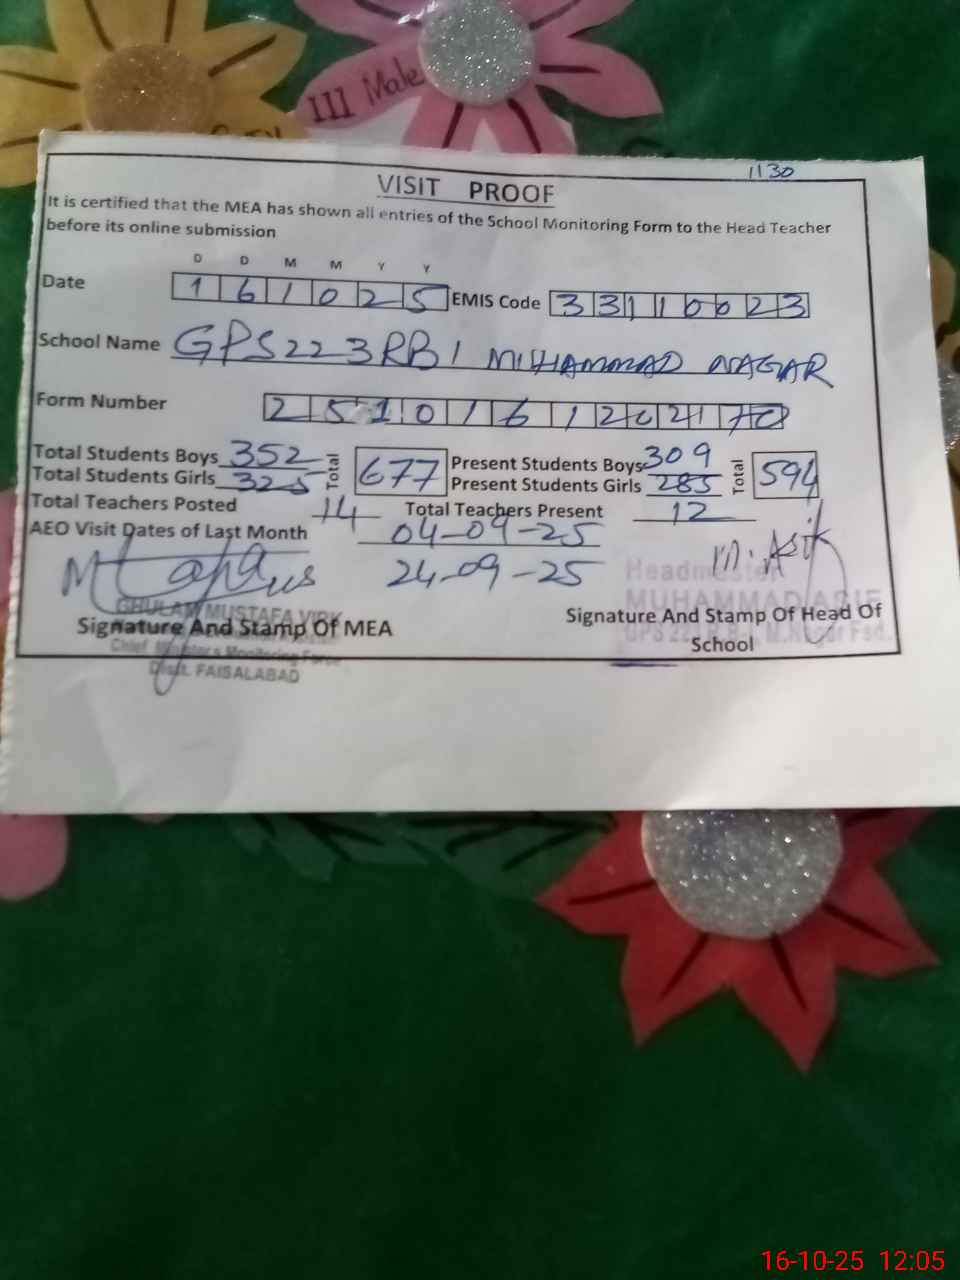 III Male
1130
VISIT PROOF
It is certified that the MEA has shown all entries of the School Monitoring Form to the Head Teacher
before its online submission
D D M M Y Y
Date 1 6 1 0 2 5 EMIS Code 3 3 1 1 0 0 2 3
School Name GPS 223 RB 1 MUHAMMAD NAGAR
Form Number
Total Students Boys 352 Total 677 Present Students Boys 309 Total 594
Total Students Girls 325 Present Students Girls 285
Total Teachers Posted 14 Total Teachers Present 12
AEO Visit Dates of Last Month 04-09-25
24-09-25
M. Asif
Headmaster
MUHAMMAD ASIF
GHULAM MUSTAFA VIRK
Signature And Stamp Of MEA
Signature And Stamp Of Head Of
School
Chief Minister's Monitoring Force
Distt. FAISALABAD
16-10-25 12:05